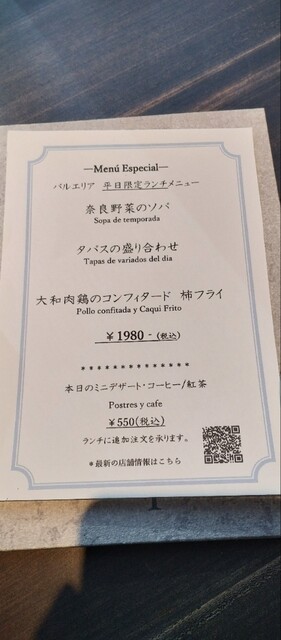 —Menú Especial—
バルエリア 平日限定ランチメニュー
奈良野菜のソパ
Sopa de temporada
タパスの盛り合わせ
Tapas de variados del dia
大和肉鶏のコンフィタード 柿フライ
Pollo confitada y Caqui Frito
￥1980-(税込)
********************
本日のミニデザート・コーヒー/紅茶
Postres y cafe
￥550(税込)
ランチに追加注文を承ります。
*最新の店舗情報はこちら